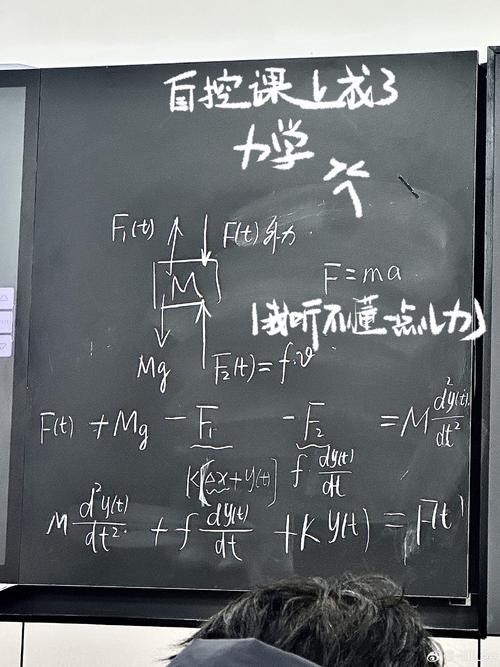 自控课上成了
力学
个
F₁(t) F(t)外力
M
F=ma
(我听不懂一点儿力)
Mg F₂(t)=f·v
F(t) + Mg - F₁ - F₂ = M d²y(t)/dt²
K[Δx+y(t)] f·dy(t)/dt
M d²y(t)/dt² + f dy(t)/dt + K y(t) = F(t)